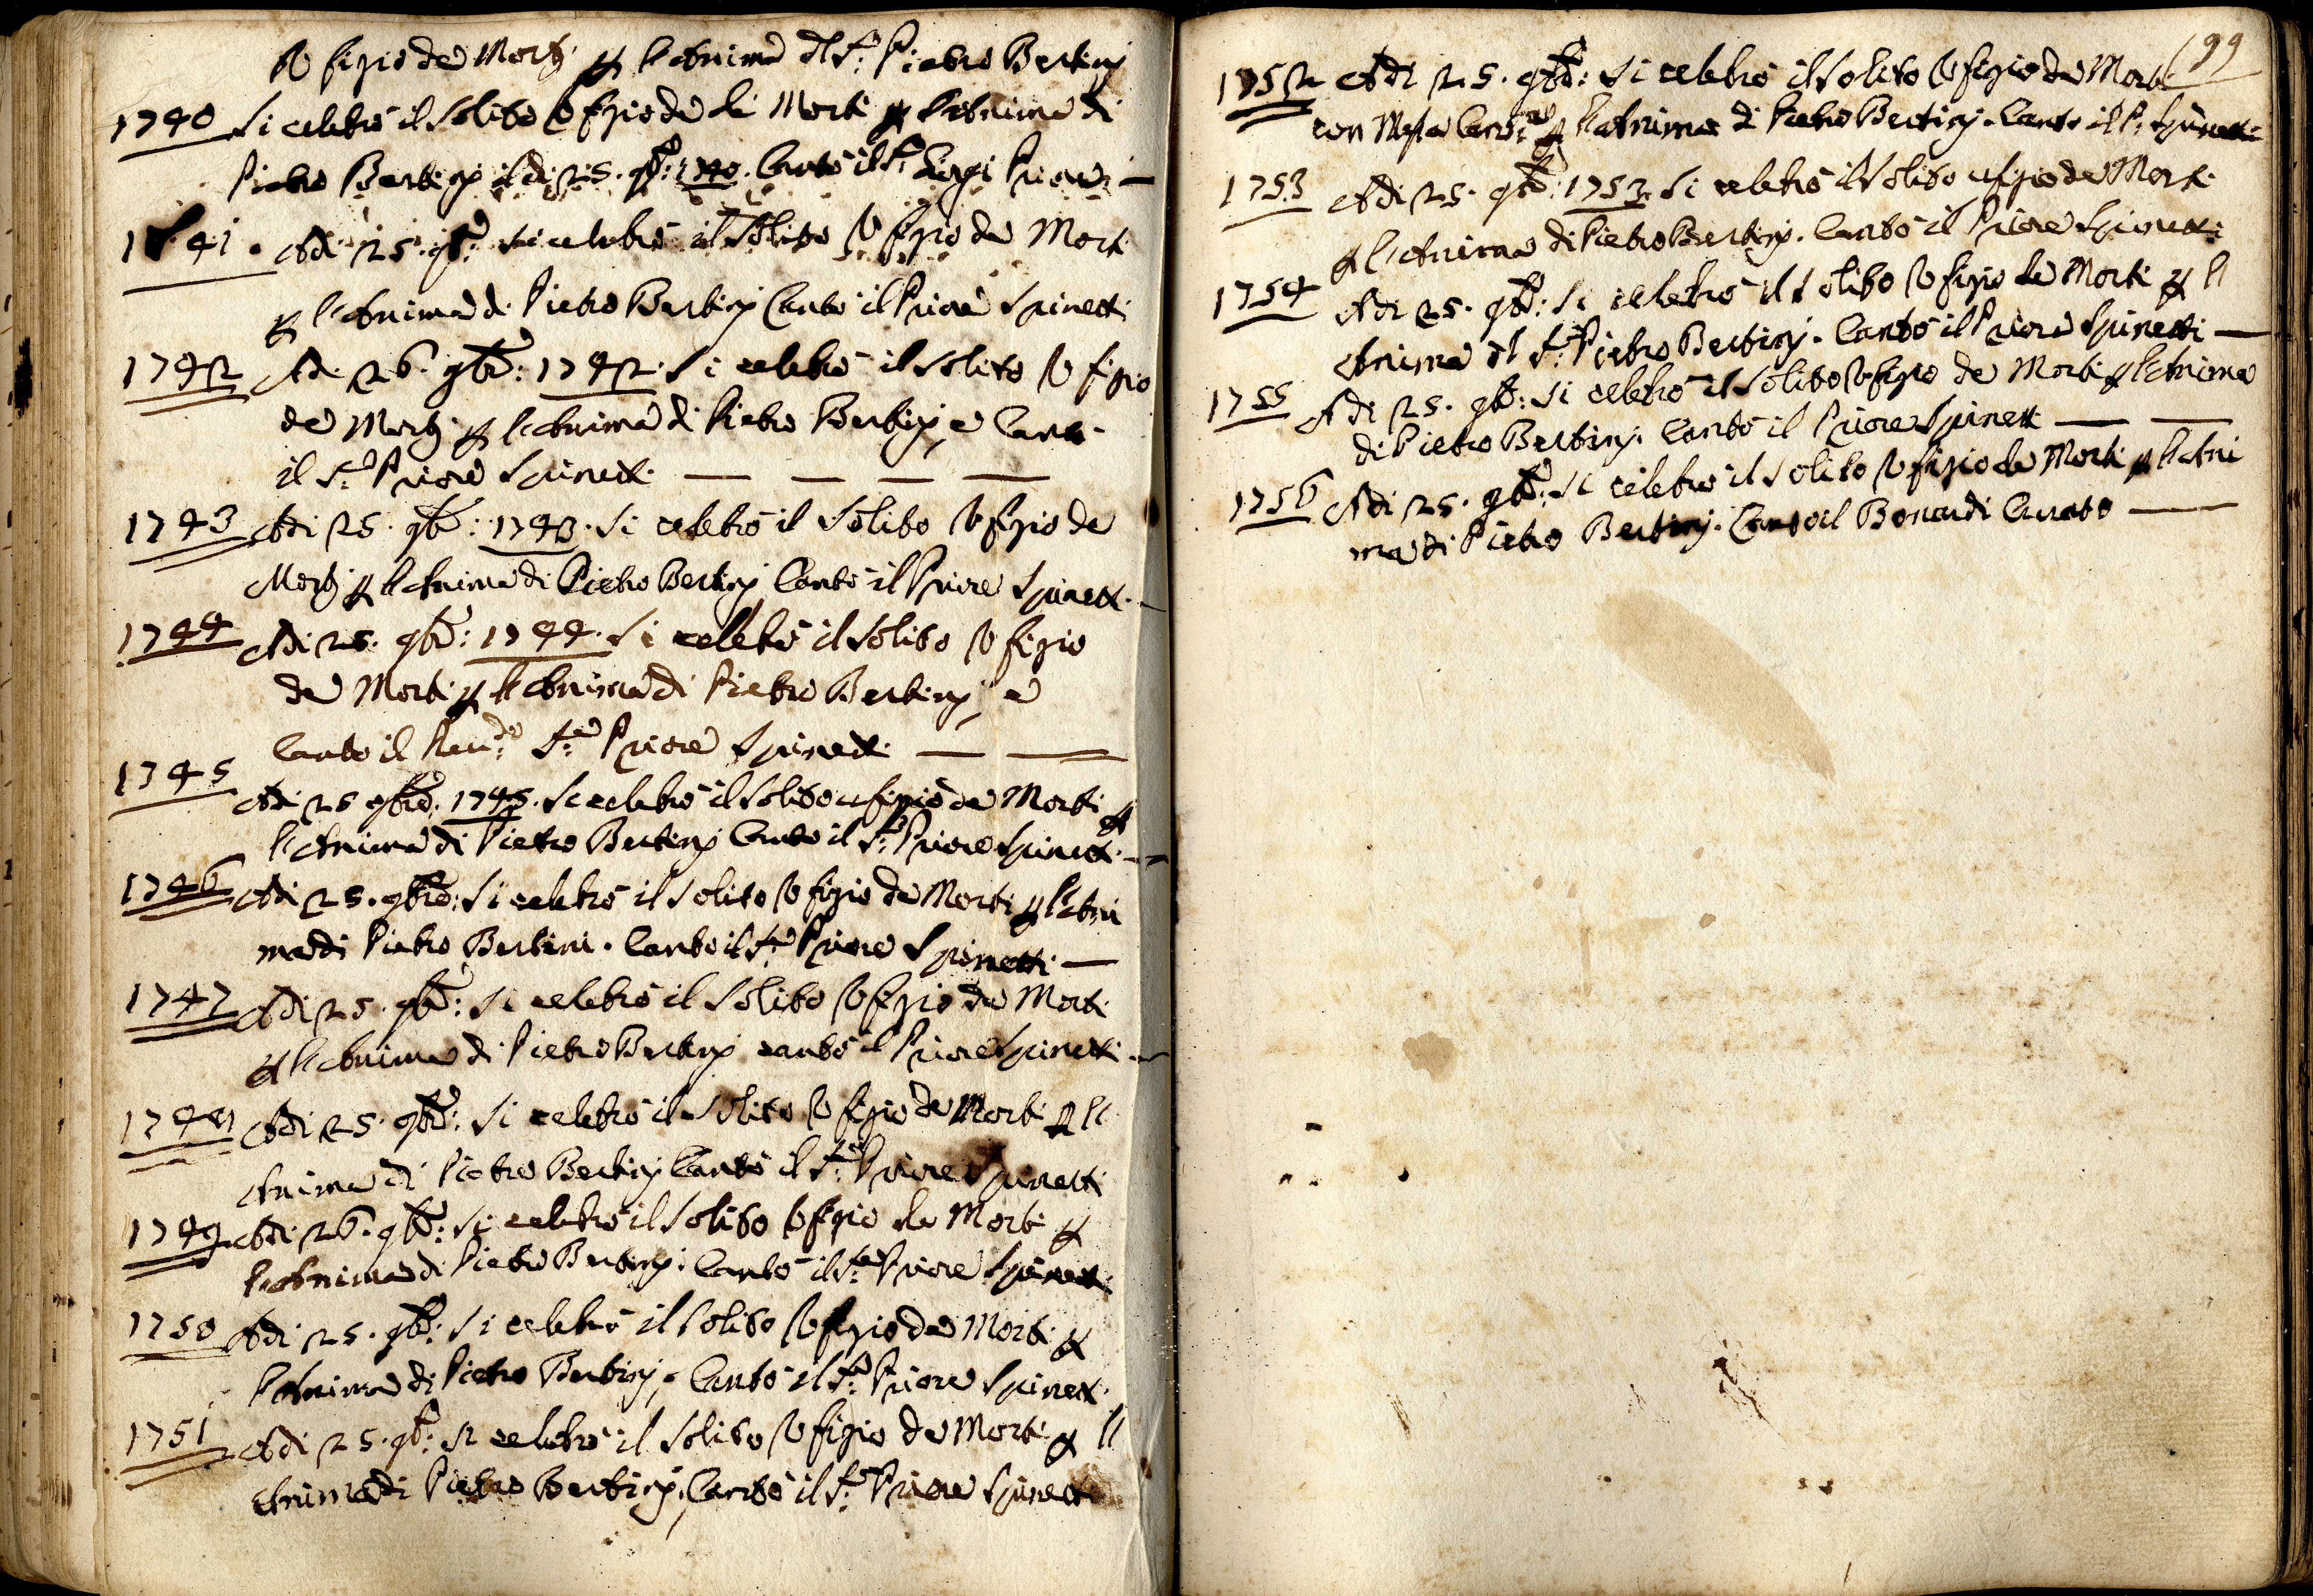 Ofizio de Mortj p l'Anima dl Sr. Pietro Bertinj
1740 Si celebrò il solito Ofizio de li Morti p l'Anima di
Pietro Bertinj il dì 25. 9bre: 1740. Cantò il Sr. Priore
1741. Adi 25. 9bre si celebrò il solito Ofizio de Morti
p l'Anima di Pietro Bertinj Cantò il Priore Spinetti
1742 Adi 26. 9bre: 1742. Si celebrò il solito Ofizio
de Mortj p l'Anima di Pietro Bertinj, e Cantò
il Sr. Priore Spinetti
1743 Adi 25. 9bre: 1743. Si celebrò il solito Ofizio de
Mortj p l'Anima di Pietro Bertinj Cantò il Priore Spinetti
1744 Adi 25. 9bre: 1744. Si celebrò il solito Ofizio
de Morti p l'Anima di Pietro Bertinj, e
Cantò il Reudo. Sr. Priore Spinetti
1745 Adi 25 9bre: 1745. Si celebrò il solito ufizio de Morti p
l'Anima di Pietro Bertinj Cantò il Sr. Priore Spinetti
1746 Adi 25. 9bre: Si celebrò il solito Ofizio de Morti p l'Ani
ma di Pietro Bertini. Cantò il Sr. Priore Spinetti
1747 Adi 25. 9bre: Si celebrò il solito Ofizio de Morti
p l'Anima di Pietro Bertinj cantò il Priore Spinetti
1748 Adi 25. 9bre: Si celebrò il solito Ofizio de Morti p l'
Anima di Pietro Bertinj Cantò il Sr. Priore Spinetti
1749 Adi 26. 9bre: Si celebrò il solito Ofizio de Morti p
l'Anima di Pietro Bertinj. Cantò il Sr. Priore Spinetti
1750 Adi 25. 9bre: Si celebrò il solito Ofizio de Morti p
l'Anima di Pietro Bertinj, Cantò il Sr. Priore Spinetti
1751 Adi 25. 9bre: Si celebrò il solito Ofizio de Morti p l'
Anima di Pietro Bertinj, Cantò il Sr. Priore Spinetti
99
1752 Adi 25. 9bre: Si celebrò il solito Ofizio de Morti
con Messa Canta p l'Anima di Pietro Bertinj. Cantò il P. Spinetti
1753 Adi 25. 9bre: 1753. Si celebrò il solito ufizio de Morti
p l'Anima di Pietro Bertinj. Cantò il Priore Spinetti
1754 Adi 25. 9bre: Si celebrò il solito Ofizio de Morti p l'
Anima dl Sr. Pietro Bertinj. Cantò il Priore Spinetti
1755 Adi 25. 9bre: Si celebrò il solito Ofizio de Morti p l'Anima
di Pietro Bertinj. Cantò il Priore Spinetti
1756 Adi 25. 9bre: Si celebrò il solito Ofizio de Morti p l'Ani
ma di Pietro Bertinj. Cantò il Bonardi Curato